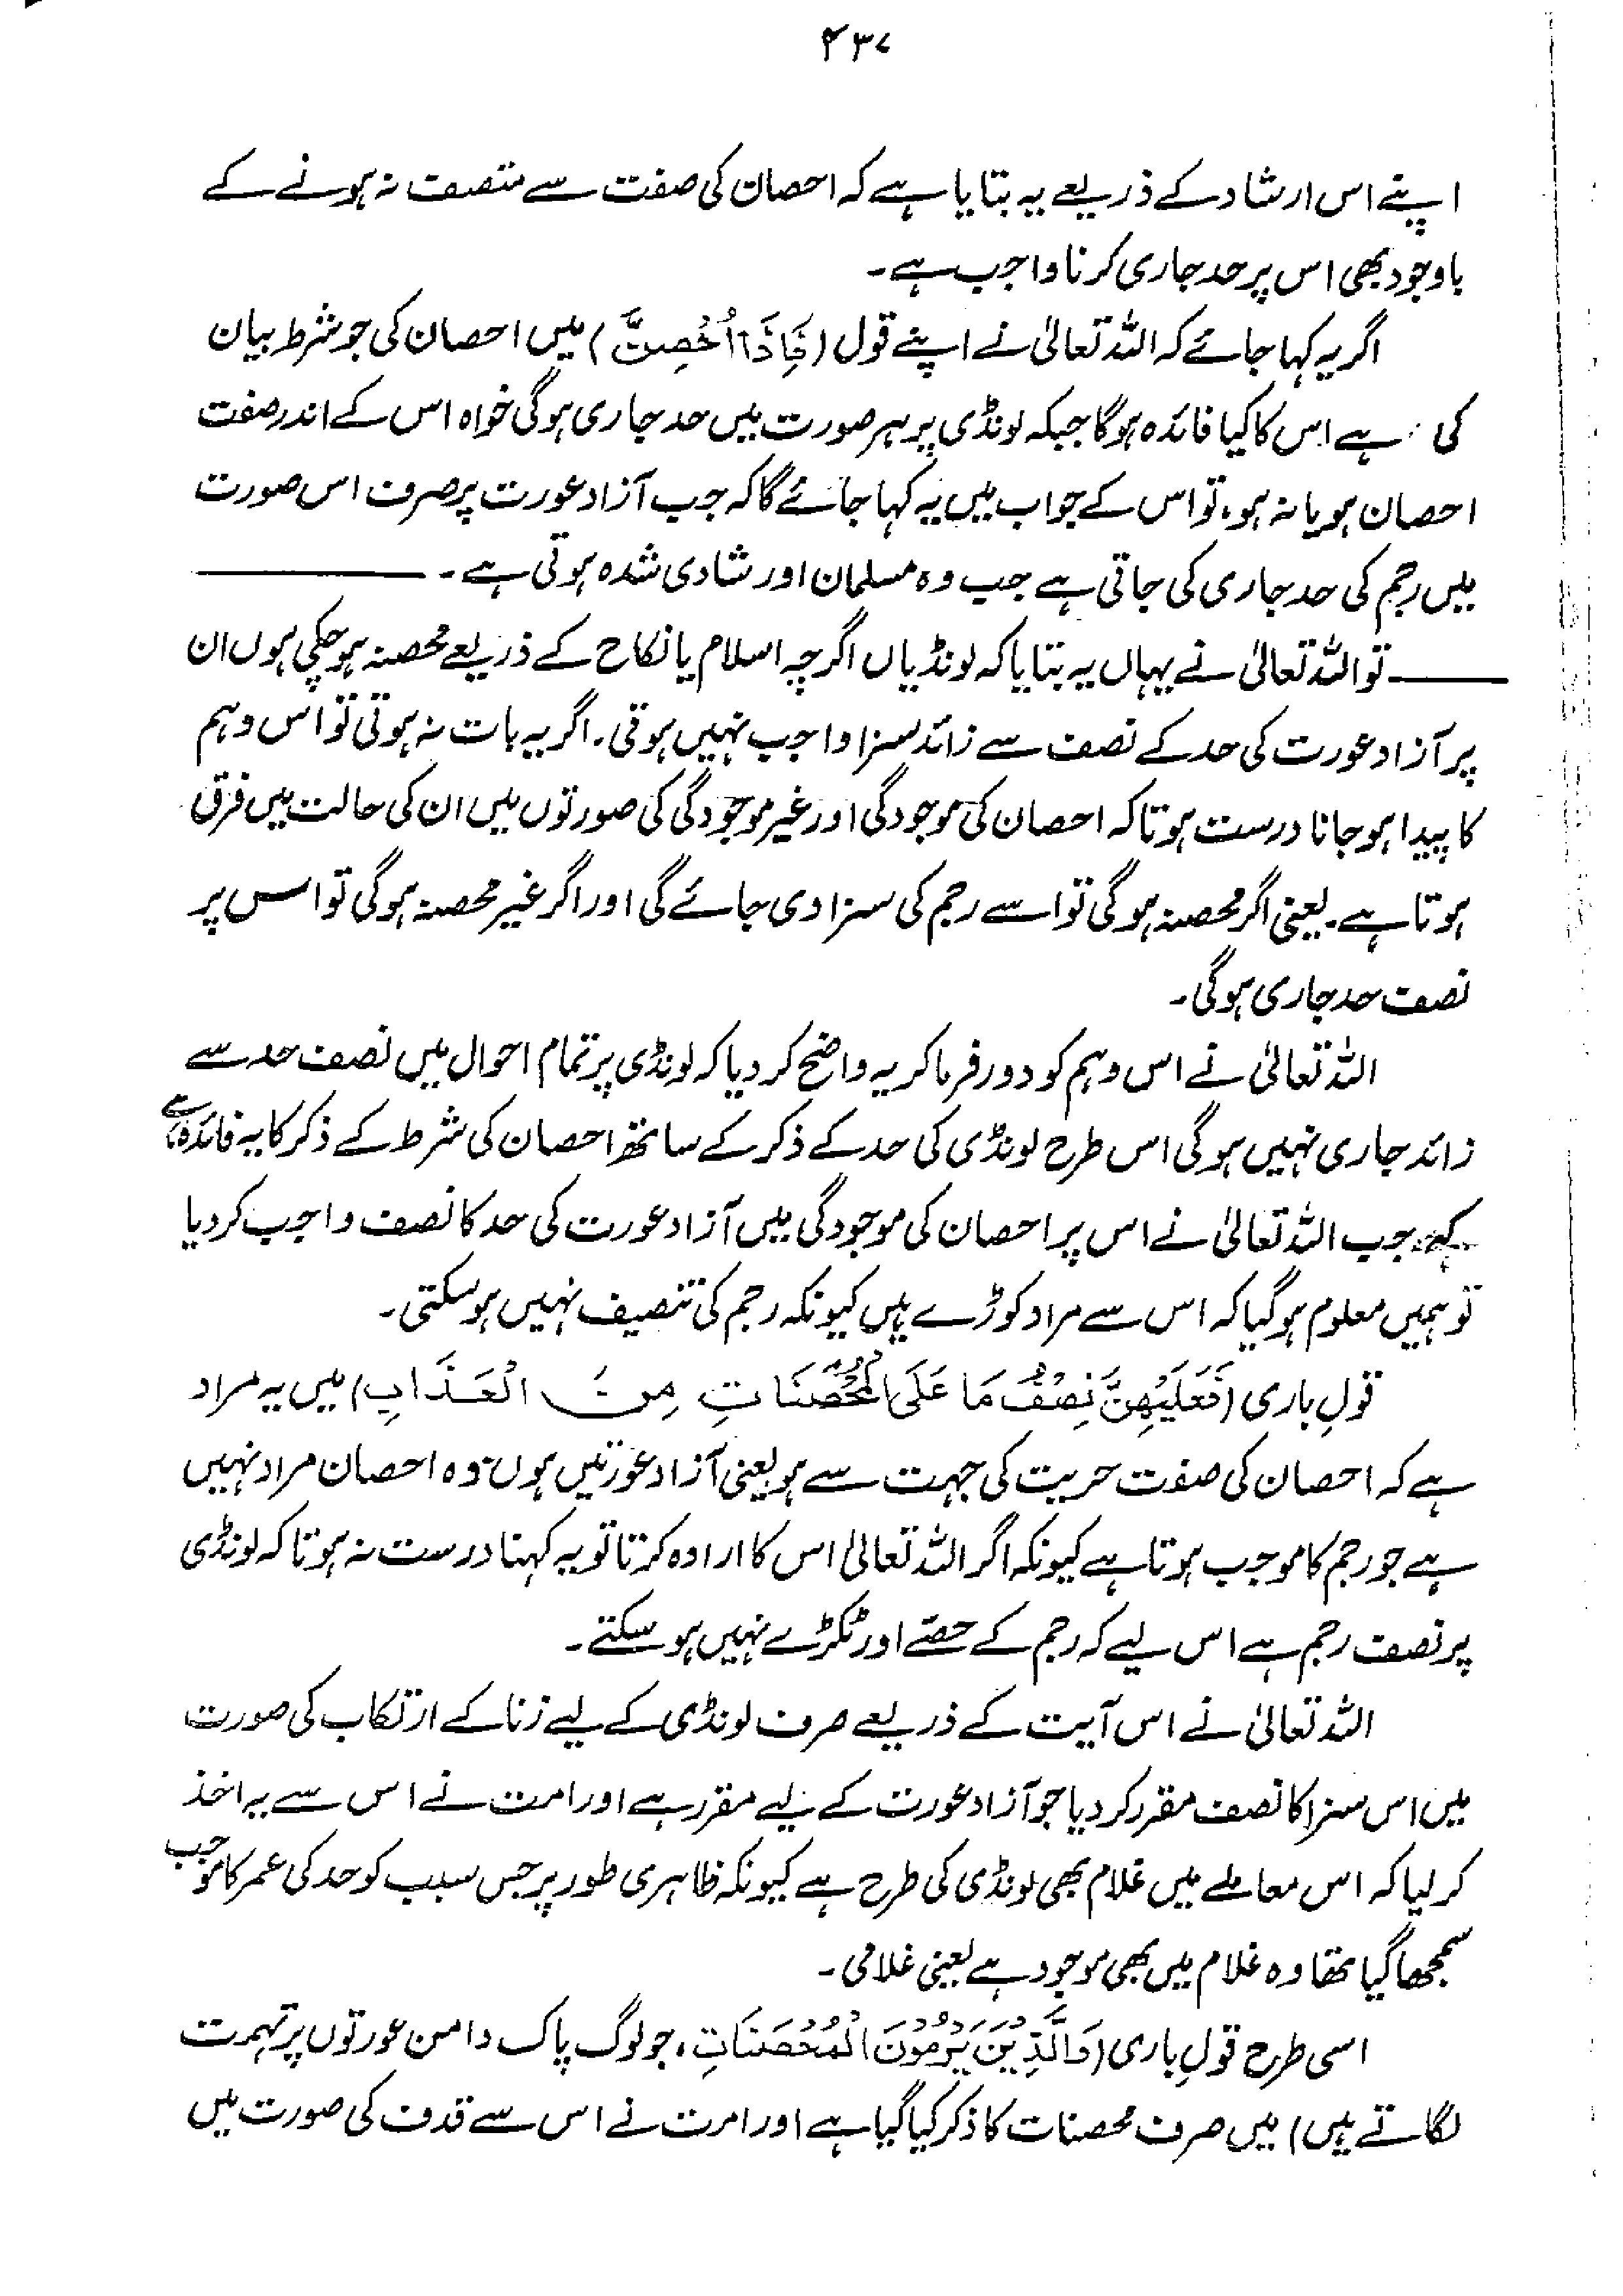 ۴۳۷
اپنے اس ارشاد کے ذریعے یہ بتایا ہے کہ احصان کی صفت سے متصف نہ ہونے کے
باوجود بھی اس پر حد جاری کرنا واجب ہے۔
اگر یہ کہا جائے کہ اللہ تعالیٰ نے اپنے قول (فَاِذَا اُحْصِنَّ) میں احصان کی جو شرط بیان
کی ہے اس کا کیا فائدہ ہوگا جبکہ لونڈی پر ہر صورت میں حد جاری ہوگی خواہ اس کے اندر صفت
احصان ہو یا نہ ہو، تو اس کے جواب میں یہ کہا جائے گا کہ جب آزاد عورت پر صرف اس صورت
میں رجم کی حد جاری کی جاتی ہے جب وہ مسلمان اور شادی شدہ ہوتی ہے۔ ———
——— تو اللہ تعالیٰ نے یہاں یہ بتایا کہ لونڈیاں اگرچہ اسلام یا نکاح کے ذریعے محصنہ ہوچکی ہوں ان
پر آزاد عورت کی حد کے نصف سے زائد سزا واجب نہیں ہوتی۔ اگر یہ بات نہ ہوتی تو اس وہم
کا پیدا ہو جانا درست ہوتا کہ احصان کی موجودگی اور غیر موجودگی کی صورتوں میں ان کی حالت میں فرق
ہوتا ہے۔ یعنی اگر محصنہ ہوگی تو اسے رجم کی سزا دی جائے گی اور اگر غیر محصنہ ہوگی تو اس پر
نصف حد جاری ہوگی۔
اللہ تعالیٰ نے اس وہم کو دور فرما کر یہ واضح کر دیا کہ لونڈی پر تمام احوال میں نصف حد سے
زائد جاری نہیں ہوگی اس طرح لونڈی کی حد کے ذکر کے ساتھ احصان کی شرط کے ذکر کا یہ فائدہ ہے
کہ جب اللہ تعالیٰ نے اس پر احصان کی موجودگی میں آزاد عورت کی حد کا نصف واجب کر دیا
تو ہمیں معلوم ہوگیا کہ اس سے مراد کوڑے ہیں کیونکہ رجم کی تنصیف نہیں ہوسکتی۔
قولِ باری (فَعَلَيْهِنَّ نِصْفُ مَا عَلَى الْمُحْصَنَاتِ مِنَ الْعَذَابِ) میں یہ مراد
ہے کہ احصان کی صفت حریت کی جہت سے ہو یعنی آزاد عورتیں ہوں وہ احصان مراد نہیں
ہے جو رجم کا موجب ہوتا ہے کیونکہ اگر اللہ تعالیٰ اس کا ارادہ کرتا تو یہ کہنا درست نہ ہوتا کہ لونڈی
پر نصف رجم ہے اس لیے کہ رجم کے حصّے اور ٹکڑے نہیں ہوسکتے۔
اللہ تعالیٰ نے اس آیت کے ذریعے صرف لونڈی کے لیے زنا کے ارتکاب کی صورت
میں اس سزا کا نصف مقرر کر دیا جو آزاد عورت کے لیے مقرر ہے اور امت نے اس سے یہ اخذ
کر لیا کہ اس معاملے میں غلام بھی لونڈی کی طرح ہے کیونکہ ظاہری طور پر جس سبب کو حد کی عمر کا موجب
سمجھا گیا تھا وہ غلام میں بھی موجود ہے یعنی غلامی۔
اسی طرح قولِ باری (وَالَّذِيْنَ يَرْمُوْنَ الْمُحْصَنَاتِ، جو لوگ پاک دامن عورتوں پر تہمت
لگاتے ہیں) میں صرف محصنات کا ذکر کیا گیا ہے اور امت نے اس سے قذف کی صورت میں